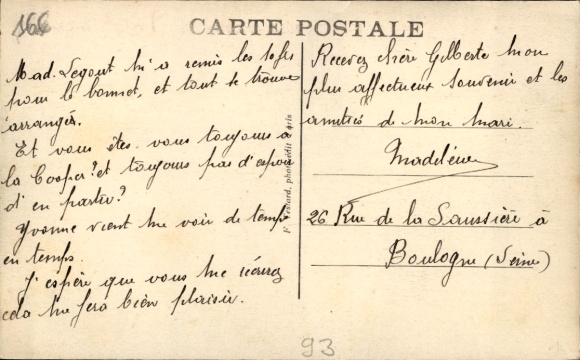 166
CARTE POSTALE
Mad. Legout m'a remis les 
pour le bonnet, et tout se trouve
arrangé.
Et vous êtes vous toujours à
la Cooper? et toujours pas d'espoir
d'en partir?
Yvonne vient me voir de temps
en temps.
J'espère que vous me écrirez
cela me fera bien plaisir.
Recevez chère Gilberte mon
plus affectueux souvenir et les
amitiés de mon mari.
Madeleine
26 Rue de la Saussière à
Boulogne (Seine)
93